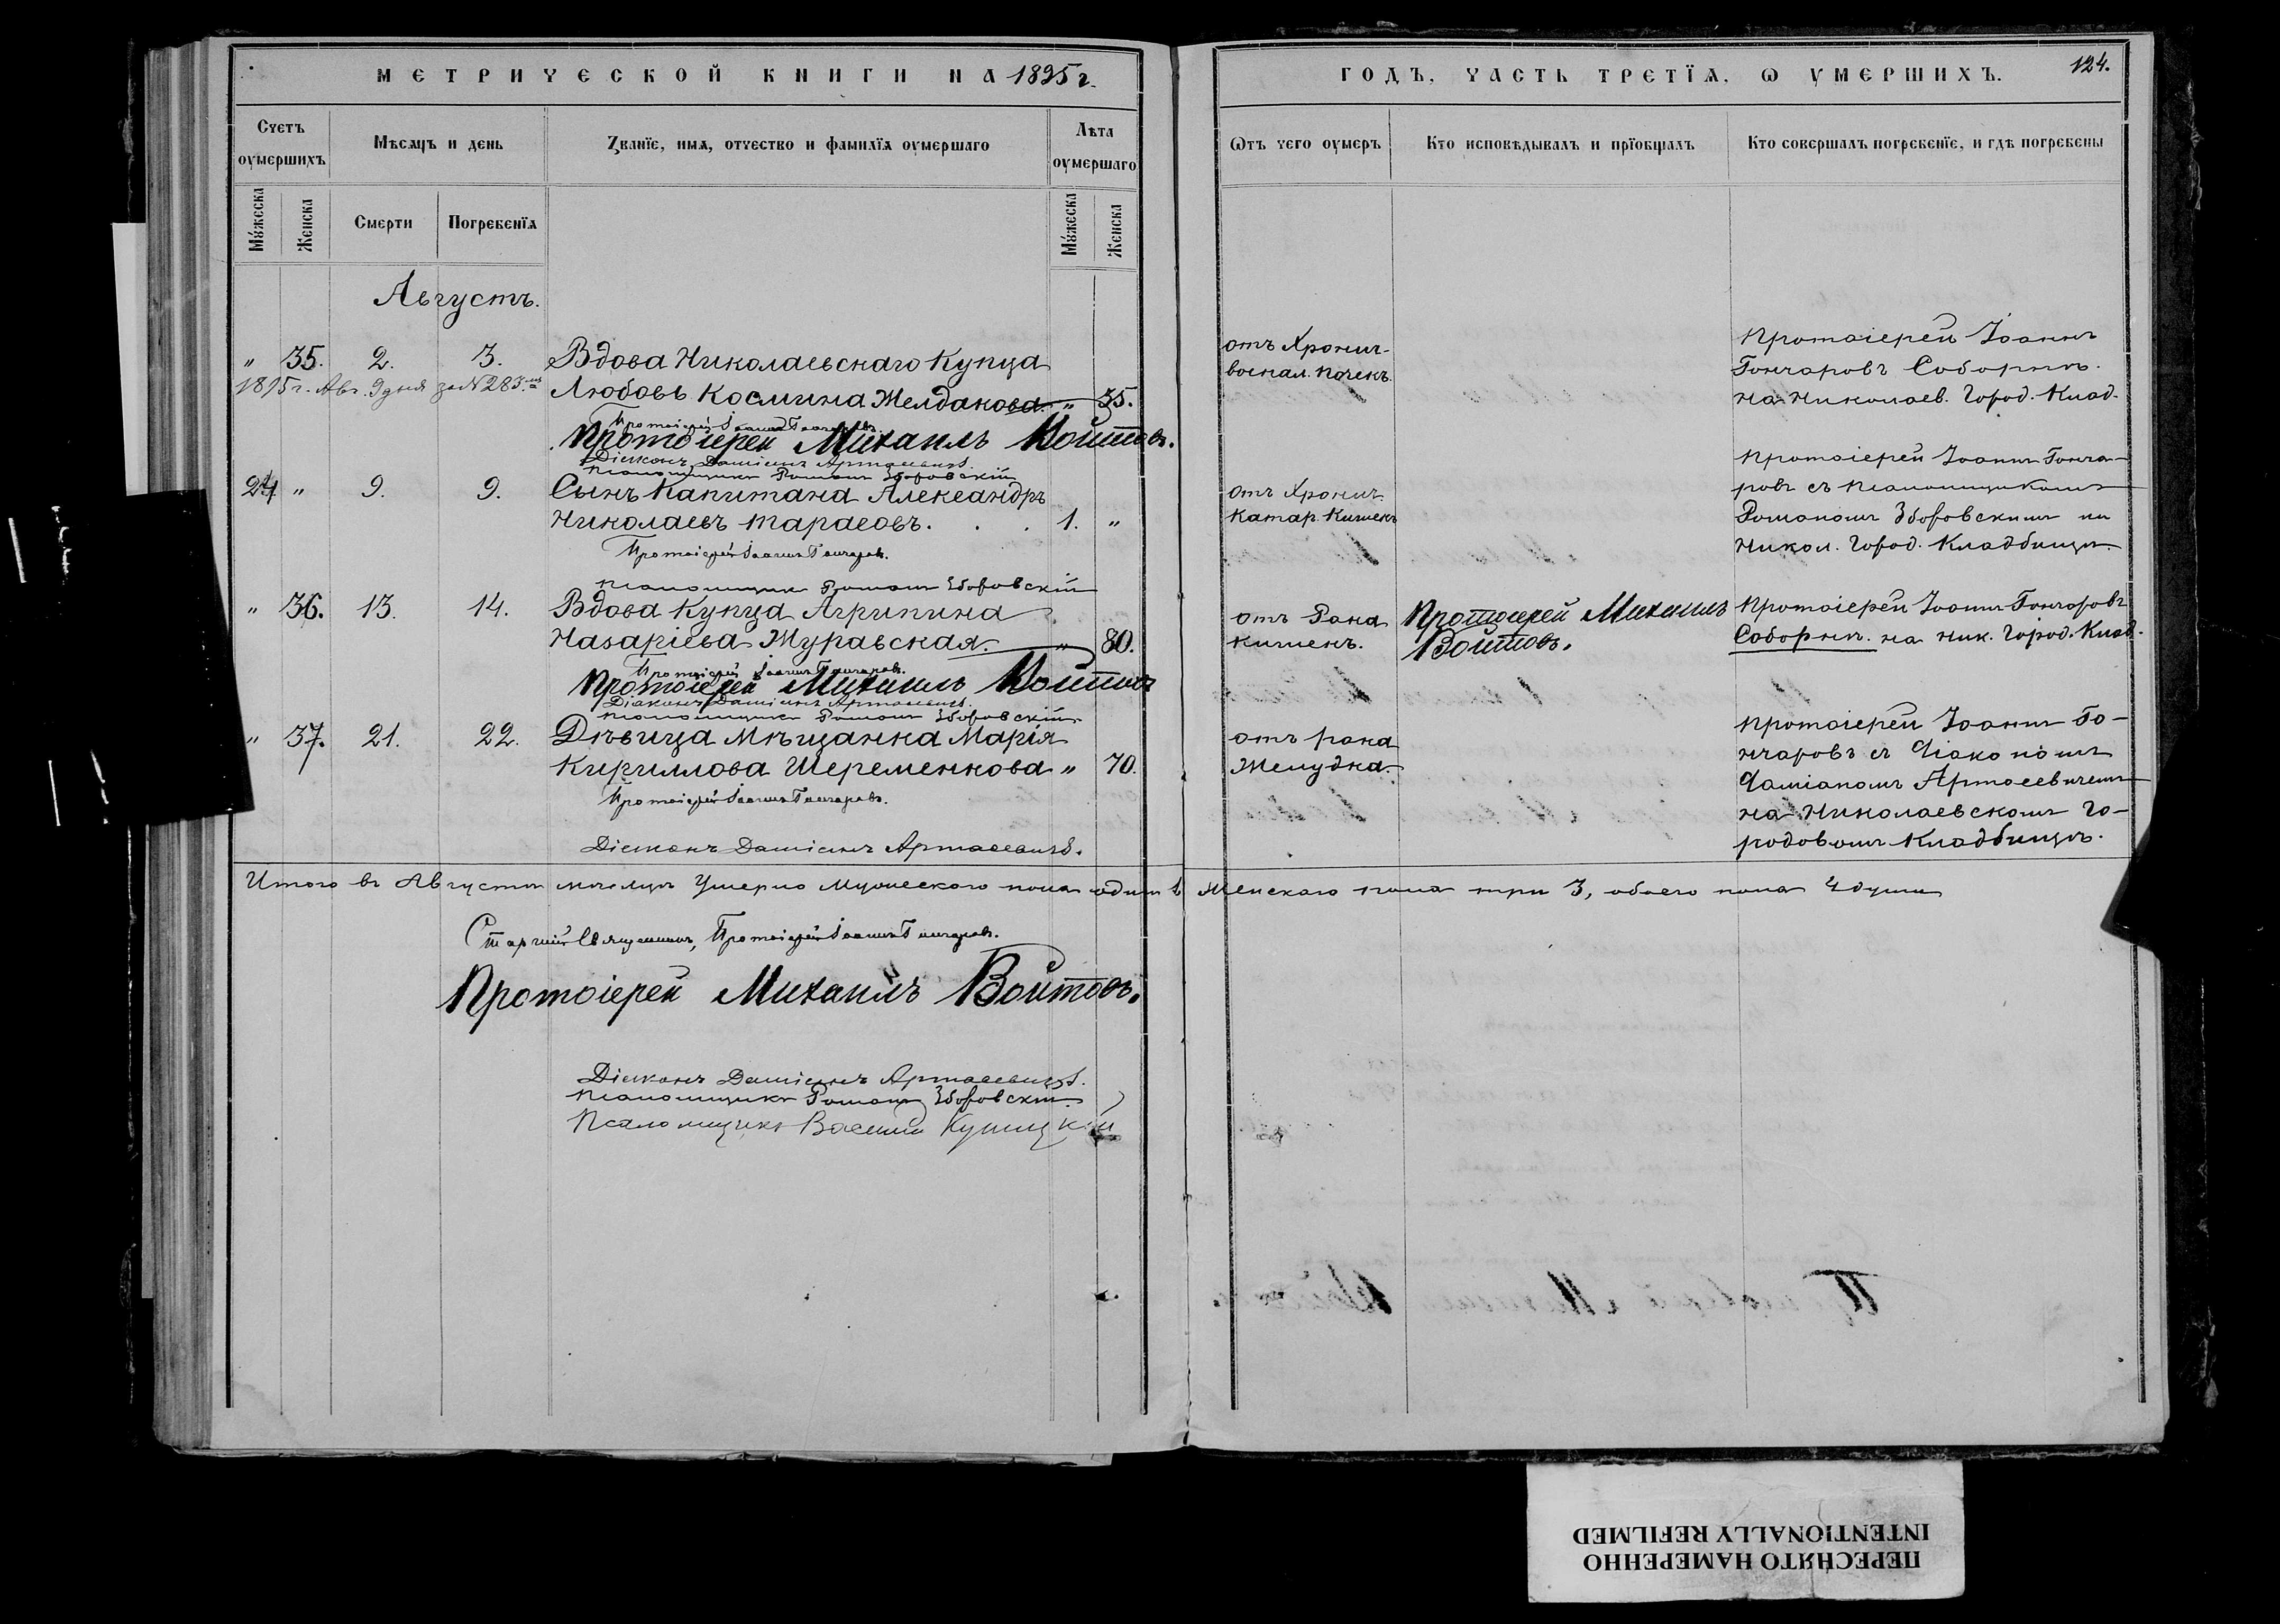 МЕТРИЧЕСКОЙ КНИГИ НА 1895 г.
Счетъ оумершихъ
Мѣсяцъ и день
Званїе, имя, отчество и фамилїя оумершаго
Лѣта оумершаго
Мужеска
Женска
Смерти
Погребенїя
Мужеска
Женска
Августъ.
" 35. 2. 3. Вдова Николаевскаго Купца
1895 г. Авг. 9 дня за № 283
Любовь Космина Желдакова " 35.
Протоіерей Іоаннъ Гончаровъ.
Протоіерей Михаилъ Войтовъ.
Діаконъ Даміанъ Артасевичъ.
Псаломщикъ Романъ Зборовскій
24 " 9. 9. Сынъ Капитана Александръ
Николаевъ Тарасовъ. . . 1. "
Протоіерей Іоаннъ Гончаровъ.
Псаломщикъ Романъ Зборовскій
" 36. 13. 14. Вдова Купца Агрипина
Назаріева Журавская. " 80.
Протоіерей Іоаннъ Гончаровъ.
Протоіерей Михаилъ Войтовъ
Діаконъ Даміанъ Артасевичъ.
Псаломщикъ Романъ Зборовскій
" 37. 21. 22. Дѣвица Мѣщанка Марія
Кириллова Шеременкова " 70.
Протоіерей Іоаннъ Гончаровъ.
Діаконъ Даміанъ Артасевичъ.
Итого въ Августѣ мѣсяцѣ Умерло Мужескаго пола одинъ 1, Женскаго пола три 3, обоего пола 4 души
Старшій Священникъ, Протоіерей Іоаннъ Гончаровъ.
Протоіерей Михаилъ Войтовъ.
Діаконъ Даміанъ Артасевичъ.
Псаломщикъ Романъ Зборовскій.
Псаломщикъ Василій
ГОДЪ, ЧАСТЬ ТРЕТЇЯ, Ѡ УМЕРШИХЪ.
124.
Ѿтъ чего оумеръ
Кто исповѣдывалъ и прїобщалъ
Кто совершалъ погребенїе, и гдѣ погребены
отъ Хронич.
воспал. почекъ.
Протоіерей Іоаннъ
Гончаровъ Соборнѣ.
на Николаев. Город. Клад.
отъ Хронич.
Катар. Кишекъ
Протоіерей Іоаннъ Гонча-
ровъ съ Псаломщикомъ
Романомъ Зборовскимъ на
Никол. Город. Кладбищѣ.
отъ Рака
кишекъ.
Протоіерей Михаилъ
Войтовъ.
Протоіерей Іоаннъ Гончаровъ
Соборнѣ. на Ник. Город. Клад.
отъ рака
Желудка.
Протоіерей Іоаннъ Го-
нчаровъ съ Діакономъ
Даміаномъ Артасевичемъ
на Николаевскомъ Го-
родовомъ Кладбищѣ.
ПЕРЕСНЯТО НАМЕРЕННО
INTENTIONALLY REFILMED